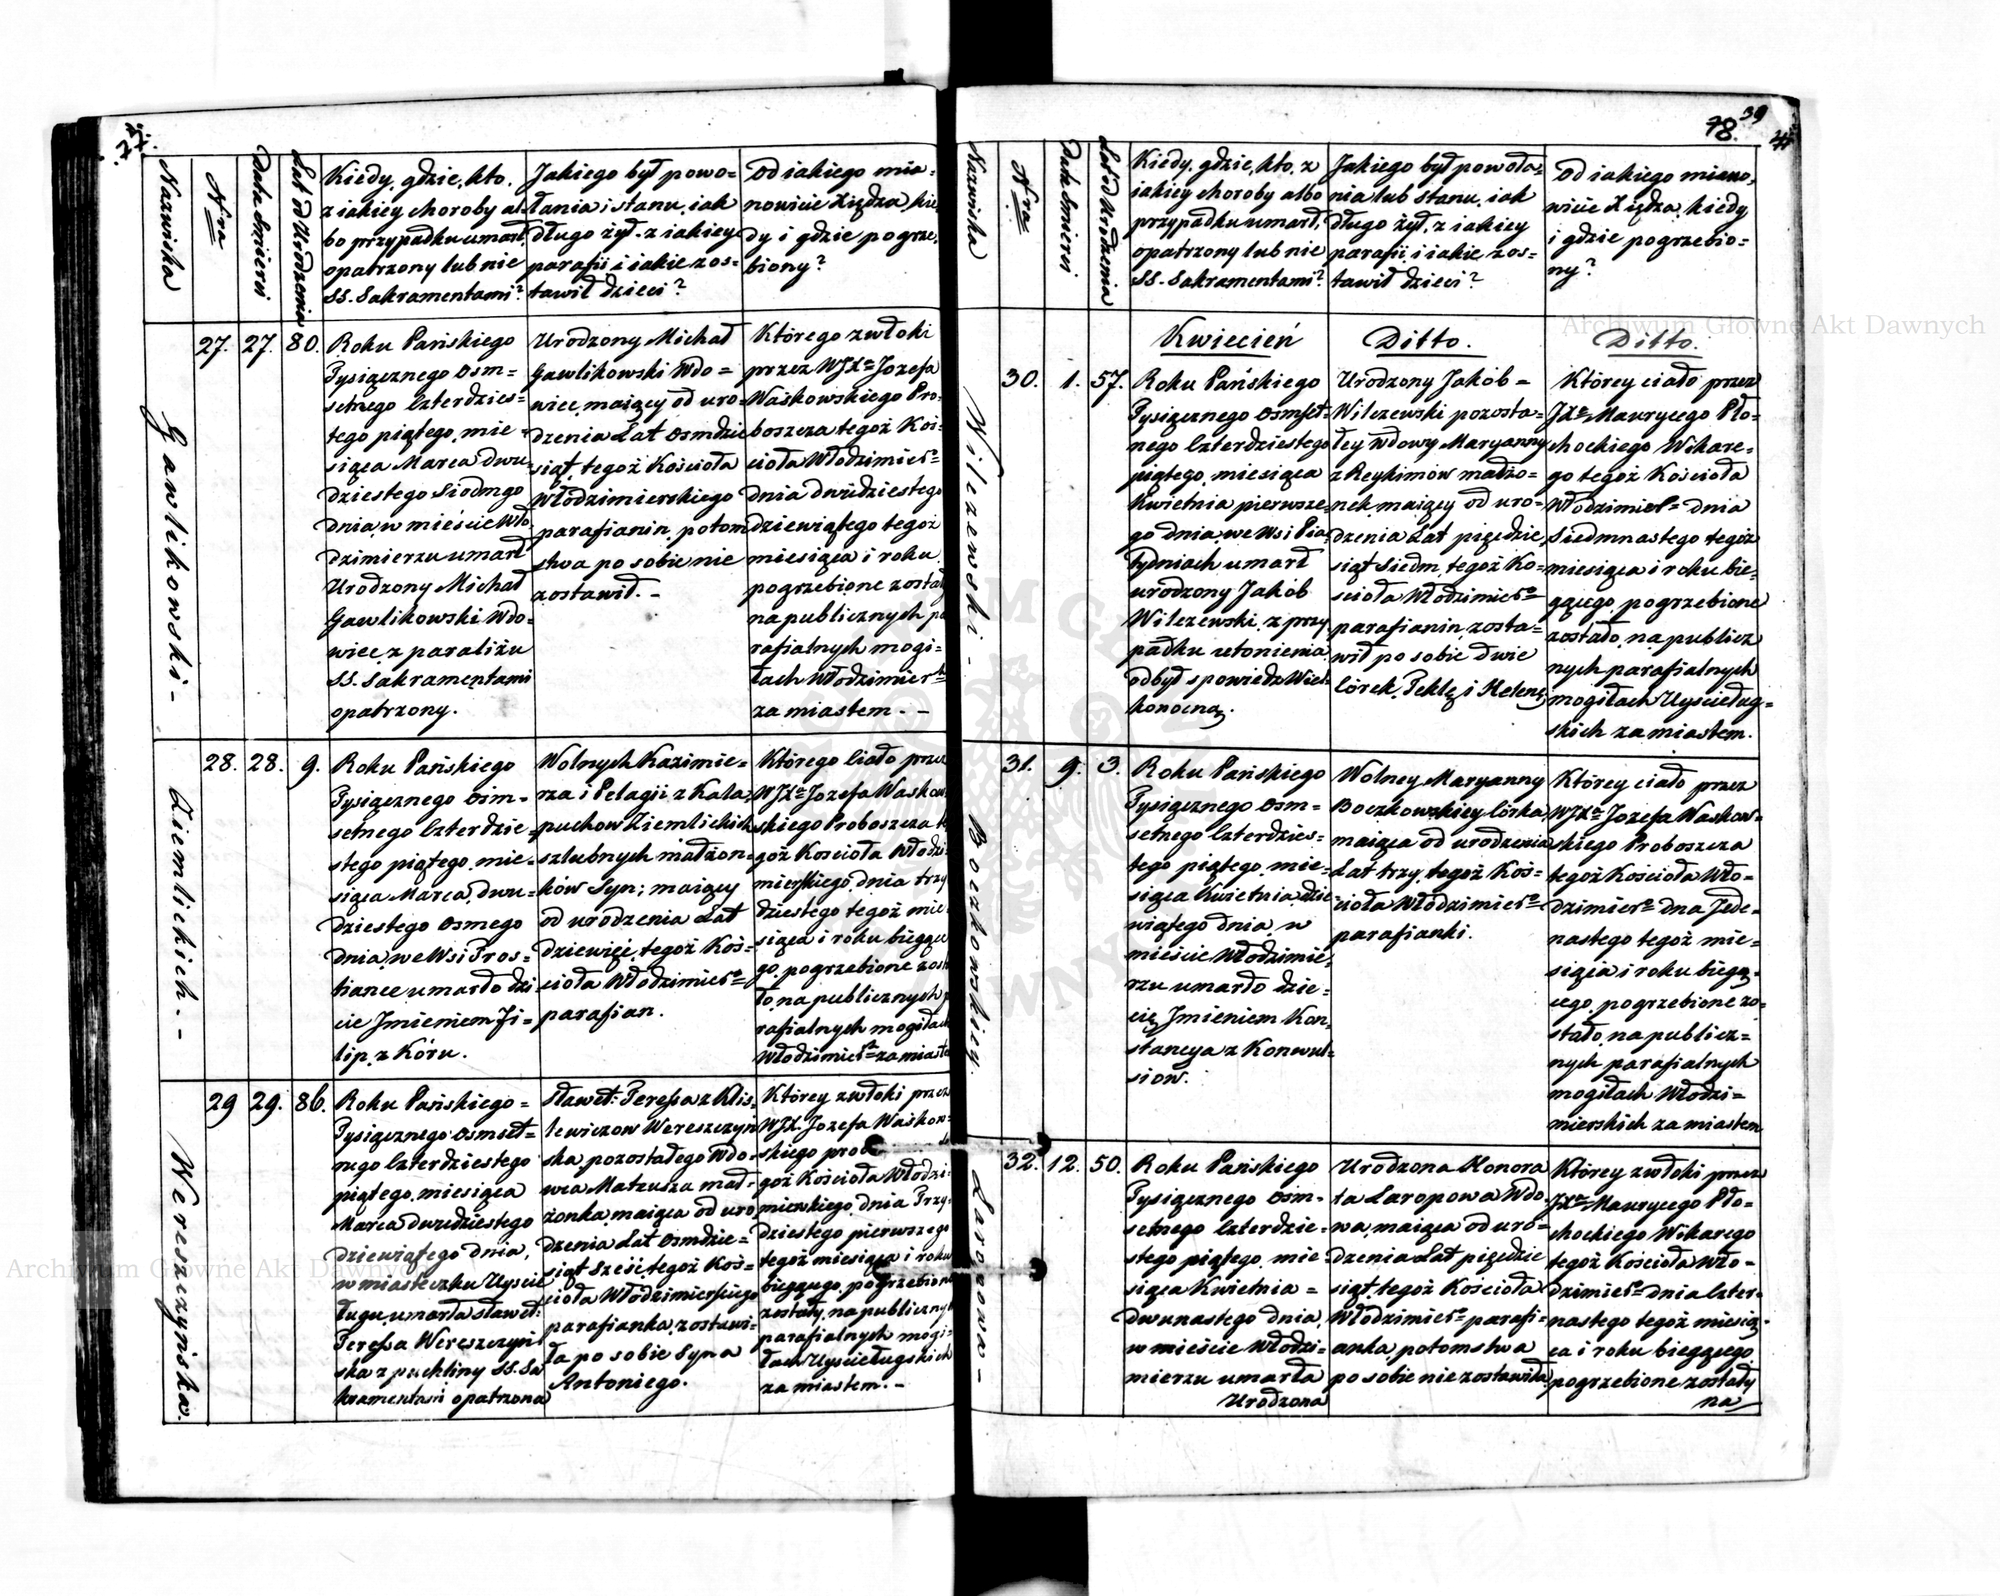 77.
Nazwiska
Nra
Data śmierci
Lat od Urodzenia
Kiedy, gdzie, kto,
z iakiey choroby al-
bo przypadku umarł,
opatrzony lub nie
SS. Sakramentami?
Jakiego był powo=
łania i stanu, iak
długo żył, z iakiey
parafii i iakie zos=
tawił dzieci?
Od iakiego mia-
nowicie Xiędza, kie
dy i gdzie pogrze,
biony?
Gawlikowski -
27.
27.
80.
Roku Pańskiego
Tysiącznego Osm=
setnego Czterdzies=
tego piątego, mie=
siąca Marca dwu-
dziestego Siódmgo
dnia, w mieście Wło
dzimierzu umarł
Urodzony Michał
Gawlikowski Wdo-
wiec, z paraliżu
SS. Sakramentami
opatrzony.
Urodzony Michał
Gawlikowski Wdo=
wiec, maiący od uro-
dzenia Lat Osmdzie
siąt, tegoż Kościoła
Włodzimierskiego
parafianin, potom
stwa po sobie nie
zostawił. -
Którego zwłoki
przez WJXa Jozefa
Waskowskiego Pro-
boszcza tegoż Koś-
cioła Włodzimier=
dnia dwudziestego
dziewiątego tegoż
miesiąca i roku
pogrzebione zostały
na publicznych pa
rafialnych mogi=
łach Włodzimiersk
za miastem. -
Ziemlickich. -
28.
28.
9.
Roku Pańskiego
Tysiącznego Osm=
setnego Czterdzie=
stego piątego, mie=
siąca Marca, dwu=
dziestego Osmego
dnia, we Wsi Pros=
tiance umarło dzi=
cie Jmieniem Fi=
lip, z Kóru.
Wolnych Kazimie=
rza i Pelagii z Kała-
puchow Ziemlickich
szlubnych małżon=
ków Syn; maiący
od urodzenia Lat
dziewięć, tegoż Koś=
cioła Włodzimiersº
parafian.
Którego Ciało przez
WJXa Jozefa Waskow
skiego Proboszcza te
goż Kościoła Włodzi
mierskiego, dnia trzy
dziestego tegoż mie
siąca i roku bieżące
go, pogrzebione zosta
ło, na publicznych p
rafialnych mogiłach
Włodzimiers= za miaste
Wereszczyńska.
29
29.
86.
Roku Pańskiego =
Tysiącznego Osmset=
nego Czterdziestego
piątego, miesiąca
Marca dwudziestego
dziewiątego dnia,
w miasteczku Uyście
ługu, umarła Sławet:
Teressa Wereszczyń
ska z puchliny SS. Sa
kramentami opatrzona
Sławet: Teressa z Klis-
lewiczow Wereszczyń
ska, pozostałego Wdo-
wca Matzusza mał-
żonka, maiąca od uro
dzenia Lat Osmdzie=
siąt Sześć, tegoż Koś=
cioła Włodzimierskiego
parafianka, zostawi=
ła po sobie Syna
Antoniego.
Którey zwłoki przez
WJX. Jozefa Waskow-
skiego
goż Kościoła Włodzi-
mierskiego, dnia Trzy-
dziestego pierwszego
tegoż miesiąca i roku
bieżącego, pogrzebione
zostały, na publicznych
parafialnych mogi=
łach Uyścieługskich
za miastem. -
78.
39
Nazwiska
Nra
Data śmierci
Lat od Urodzenia
Kiedy, gdzie, kto, z
iakiey choroby albo
przypadku umarł,
opatrzony lub nie
SS. Sakramentami?
Jakiego był powoła=
nia lub stanu, iak
długo żył, z iakiey
parafii i iakie zos=
tawił dzieci?
Od iakiego miano,
wicie Xiędza, kiedy
i gdzie pogrzebio=
ny?
Kwiecień
Ditto.
Ditto.
Wilczewski -
30.
1.
57.
Roku Pańskiego
Tysiącznego Osmset=
nego Czterdziestego
piątego, miesiąca
Kwietnia pierwsze,
go dnia, we Wsi Pia,
tydniach umarł
urodzony Jakób
Wilczewski, z przy
padku utonienia
odbył spowiedz Wiel=
konocną.
Urodzony Jakób =
Wilczewski pozosta=
łey wdowy Maryanny
z Reykimów małżo=
nek, maiący od uro=
dzenia Lat pięćdzie,
siąt Siedm, tegoż Ko=
scioła Włodzimiersº
parafianin, zosta=
wił po sobie dwie
Córek, Teklę i Helenę
Którey ciało przez
JXa Maurycego Pło=
chockiego Wikare=
go tegoż Kościoła
Włodzimiers= dnia
Siedmnastego tegoż
miesiąca i roku bie,
żącego, pogrzebione
zostało, na publicz
nych parafialnych
mogiłach Uyścieług=
skich za miastem.
Boczkowskiey
31.
9.
3.
Roku Pańskiego
Tysiącznego Osm=
setnego Czterdzies=
tego piątego, mie=
siąca Kwietnia, dzie
wiątego dnia, w
mieście Włodzimie,
rzu umarło dzie=
cię, Jmieniem Kon,
stancya z Konwul=
siow.
Wolney Maryanny
Boczkowskiey Córka,
maiąca od urodzenia
Lat trzy, tegoż Koś=
cioła Włodzimiersº
parafianki.
Którey ciało przez
WJXa Jozefa Waskow=
skiego Proboszcza
tegoż Kościoła Wło=
dzimiersº dna Jede=
nastego tegoż mie=
siąca i roku bieżą=
cego, pogrzebione zo=
stało, na publicz=
nych parafialnych
mogiłach Włodzi=
mierskich za miastem
Laropowa -
32.
12.
50.
Roku Pańskiego
Tysiącznego Osm=
setnego Czterdzie=
stego piątego, mie
siąca Kwietnia =
dwunastego dnia,
w mieście Włodzi=
mierzu umarła
Urodzona
Urodzona Honora
ta Laropowa Wdo=
wa, maiąca od uro=
dzenia Lat pięćdzie
siąt, tegoż Kościoła
Włodzimiersº parafi=
anka potomstwa
po sobie nie zostawiła,
Którey zwłoki przez
JXa Maurycego Pło=
chockiego Wikarego
tegoż Kościoła Wło=
dzimiersº dnia Czter=
nastego tegoż miesią-
ca i roku bieżącego
pogrzebione zostały
na
Archiwum Główne Akt Dawnych
Archiwum Główne Akt Dawnych